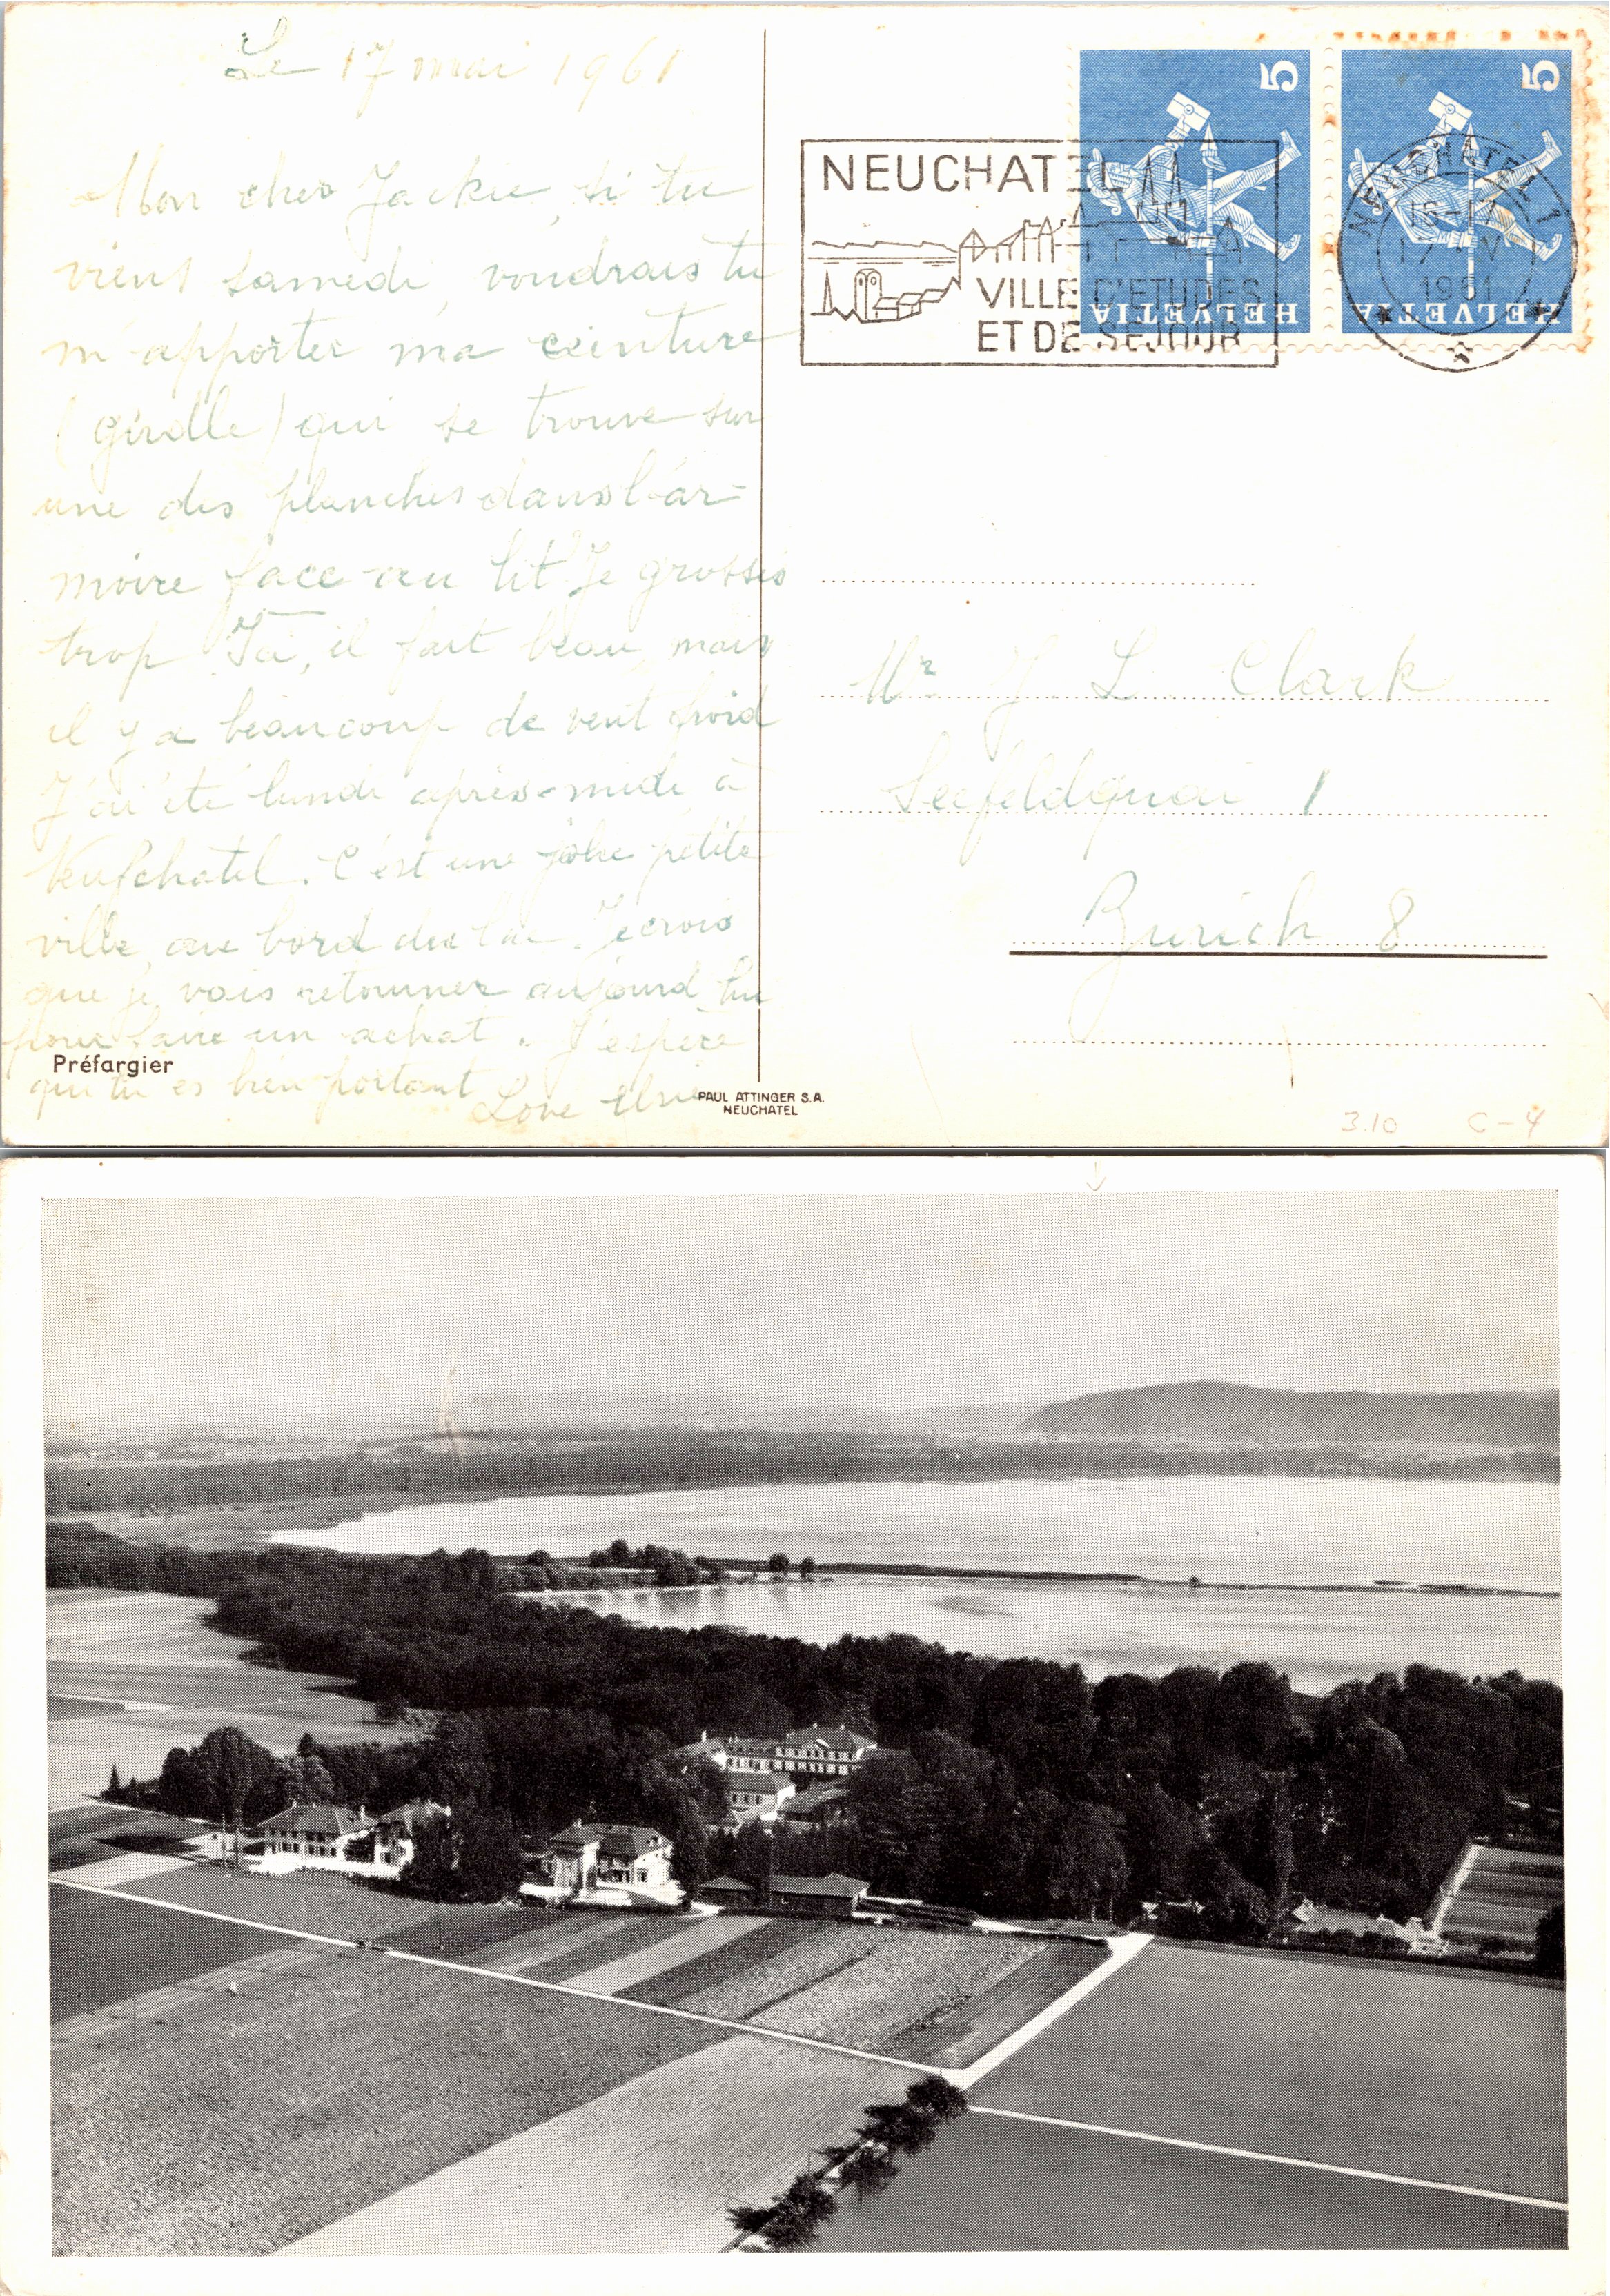 Le 17 mai 1961
Mon cher Jackie, si tu
viens samedi, voudrais tu
m'apporter ma ceinture
(girdle) qui se trouve sur
une des planches dans l'ar-
moire face au lit. Je grossis
trop. Ici, il fait beau, mais
il y a beaucoup de vent froid
J'ai été lundi après-midi à
Neufchatel. C'est une jolie petite
ville, au bord du lac. Je crois
que je vais retourner aujourd'hui
pour faire un achat. J'espère
que tu es bien portant
Love
Préfargier
PAUL ATTINGER S.A.
NEUCHATEL
NEUCHATEL
VILLE D'ETUDES
ET DE SEJOUR
5
HELVETIA
5
HELVETIA
NEUCHATEL 1
17-V
1961
Mr J. L. Clark
Seefeldquai 1
Zurich 8
3.10 C-4